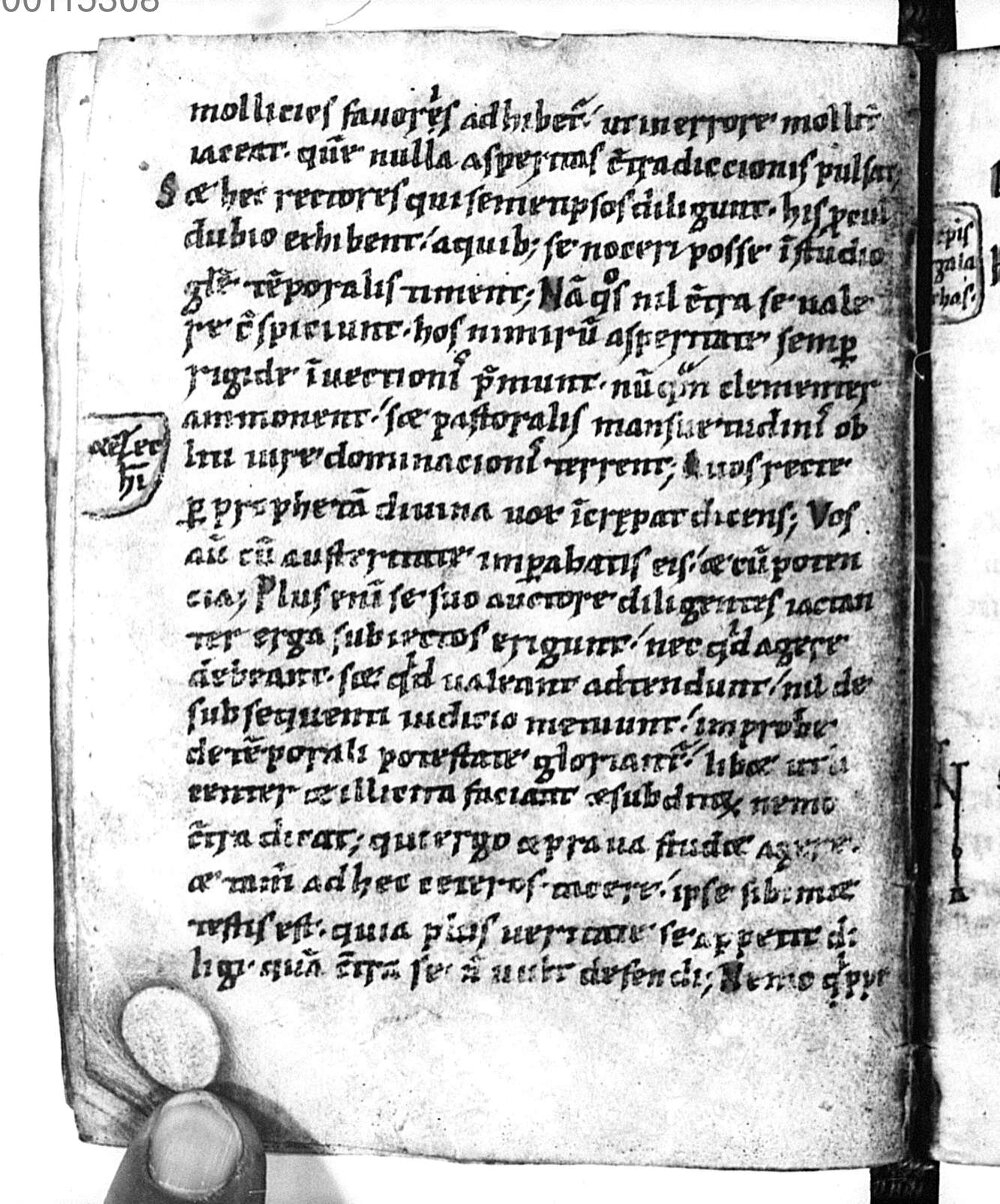 00115308
mollicies fauorẹis adhibet᷑ ut in errore mollit᷑
iaceat. quē nulla asperitas c̄tradiccionis pulsat;
Sꝫ hec rectores qui semetipsos diligunt. his ꝓcul
dubio exhibent. a quib; se noceri posse ī studio
gl̄ę tēporalis timent; Nā qͦs nil c̄tra se uale
re c̄spiciunt. hos nimirū asperitate semꝑ
rigide īuectionis p̄munt. nūquā clementer
ammonent. sꝫ pastoralis mansuetudinis ob
liti iure dominacionis terrent; Quos recte
ꝑ prophetā diuina uox īcrępat dicens; Vos
aū cū austeritate imꝑabatis eis. & cū poten
cia; Plus enī se suo auctore diligentes iactan
ter erga subiectos erigunt. nec qͥd agere
debeant. sꝫ qͥd ualeant adtendunt. nil de
subsequenti iudicio metuunt. improbe
de tēporali potestate gloriant᷑. libꝫ ut li
center & illicita faciant & subditoꝝ nemo
c̄tra dicat; qui ergo & praua studꝫ agere.
& tam̄ ad hec ceteros tacere. ipse sibimꝫ
testis est. quia plus ueritate se appetit di
ligi. quā c̄tra se n̄ uult defendi; Nemo qͥppe
&ezec
hi
epis
gala
thas.